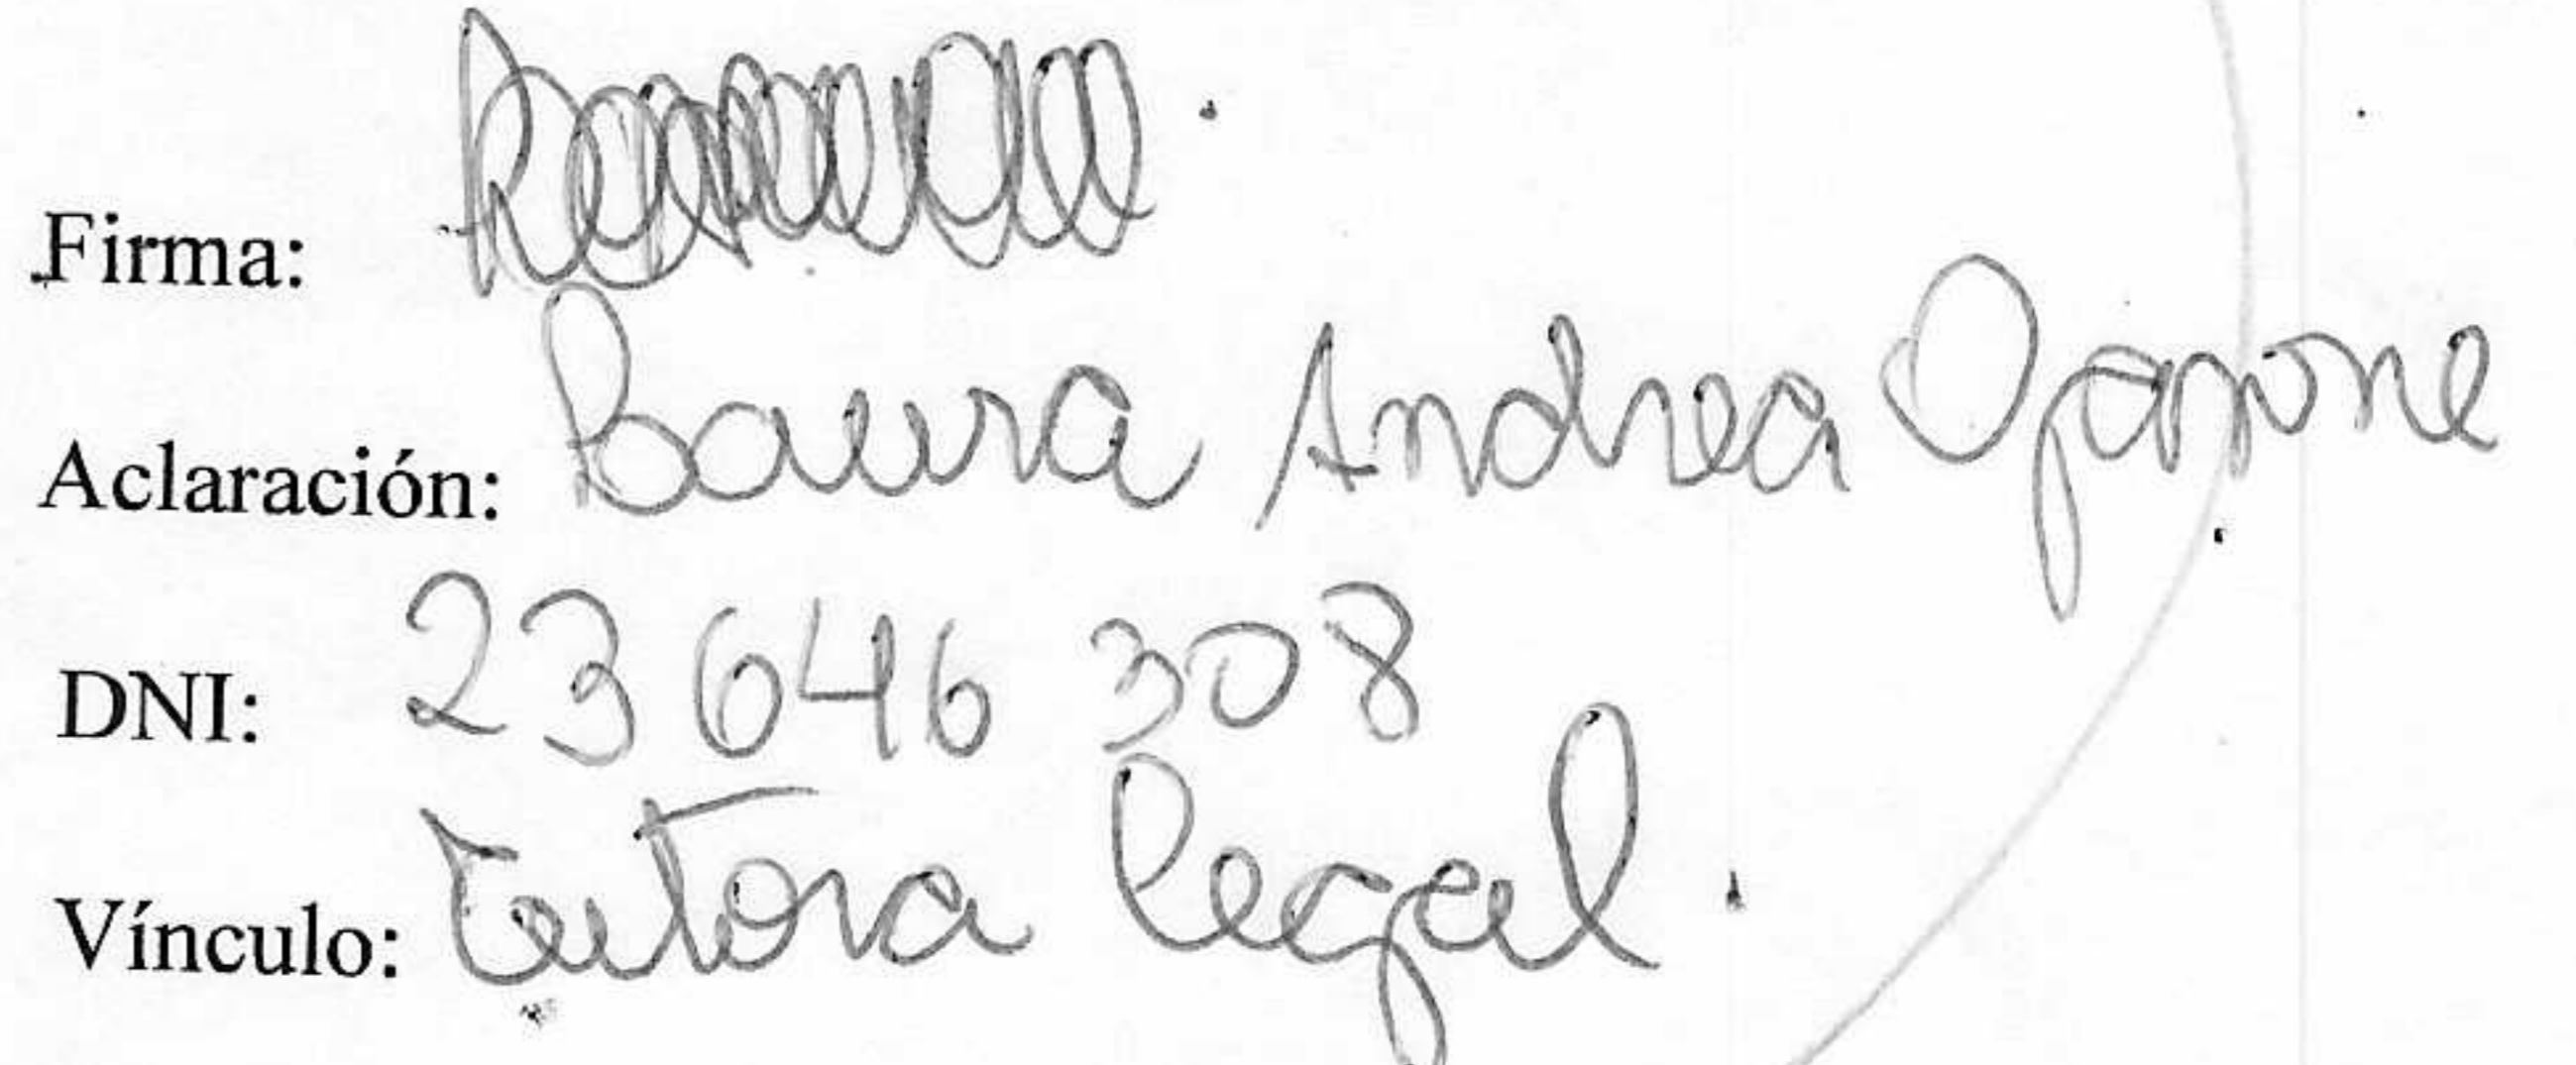 Firma:
Aclaración: Laura Andrea
DNI: 23 646 308
Vínculo: Tutora legal.